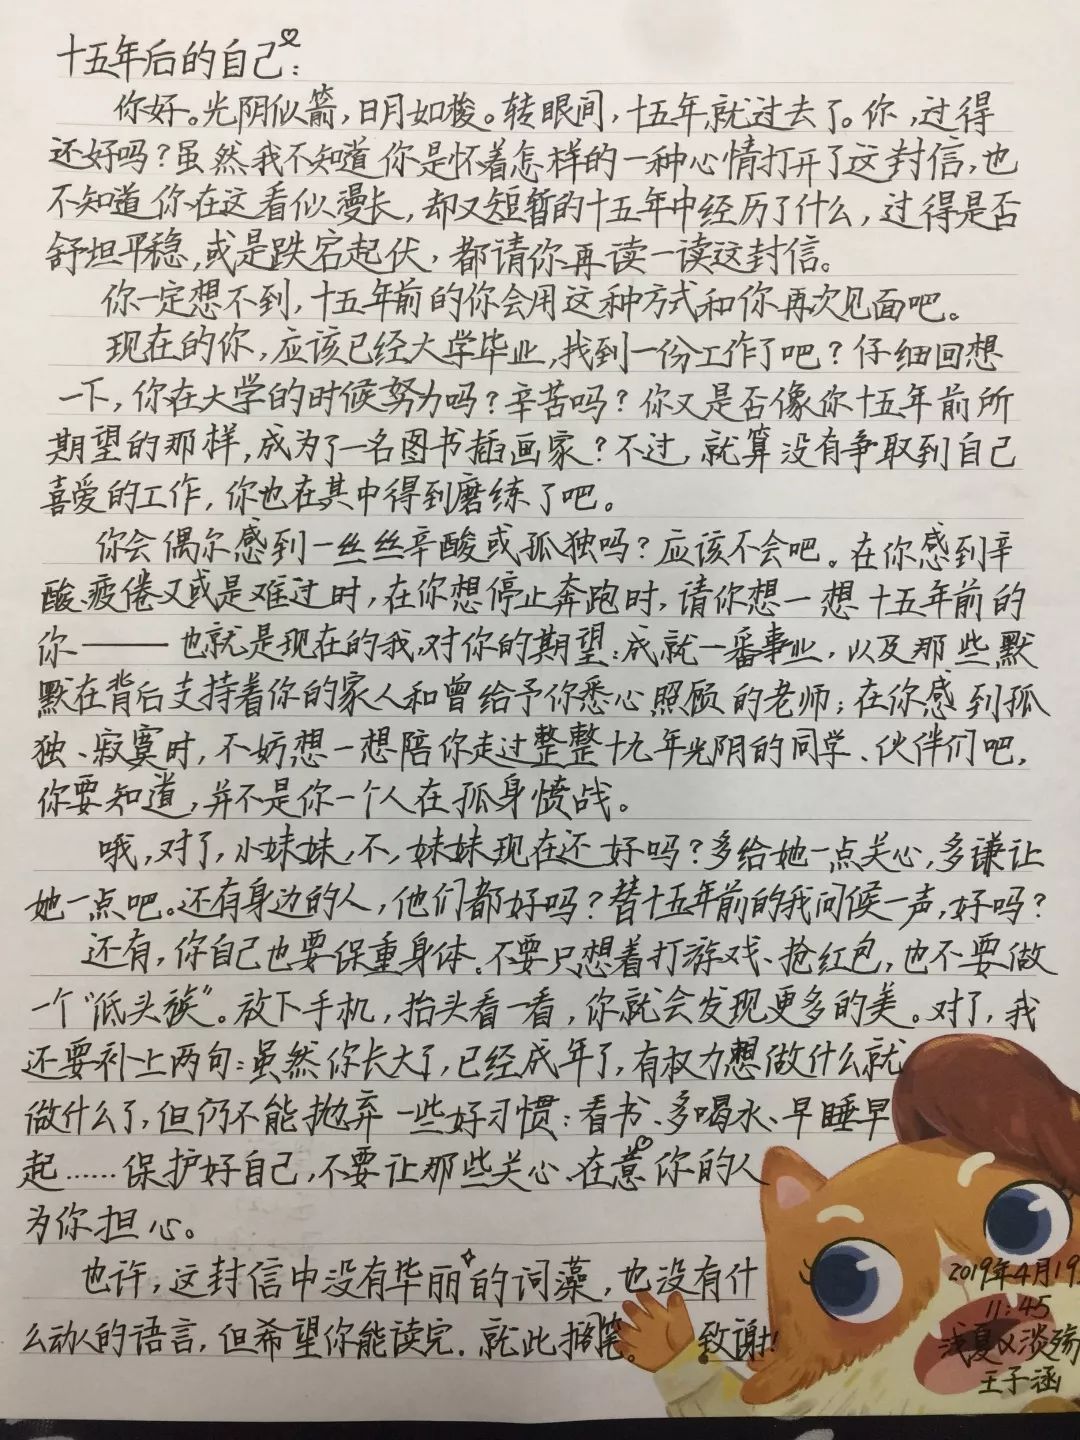 十五年后的自己:
你好。光阴似箭,日月如梭。转眼间,十五年就过去了。你,过得
还好吗?虽然我不知道你是怀着怎样的一种心情打开了这封信,也
不知道你在这看似漫长,却又短暂的十五年中经历了什么,过得是否
舒坦平稳,或是跌宕起伏,都请你再读一读这封信。
你一定想不到,十五年前的你会用这种方式和你再次见面吧。
现在的你,应该已经大学毕业,找到一份工作了吧?仔细回想
一下,你在大学的时候努力吗?辛苦吗?你又是否像你十五年前所
期望的那样,成为了一名图书插画家?不过,就算没有争取到自己
喜爱的工作,你也在其中得到磨练了吧。
你会偶尔感到一丝丝辛酸或孤独吗?应该不会吧。在你感到辛
酸、疲倦又或是难过时,在你想停止奔跑时,请你想一想十五年前的
你——也就是现在的我,对你的期望:成就一番事业,以及那些默
默在背后支持着你的家人和曾给予你悉心照顾的老师;在你感到孤
独、寂寞时,不妨想一想陪你走过整整十九年光阴的同学、伙伴们吧,
你要知道,并不是你一个人在孤身愤战。
哦,对了,小妹妹,不,妹妹现在还好吗?多给她一点关心,多谦让
她一点吧。还有身边的人,他们都好吗?替十五年前的我问候一声,好吗?
还有,你自己也要保重身体。不要只想着打游戏、抢红包,也不要做
一个“低头族”。放下手机,抬头看一看,你就会发现更多的美。对了,我
还要补上两句:虽然你长大了,已经成年了,有权力想做什么就
做什么了,但仍不能抛弃一些好习惯:看书、多喝水、早睡早
起……保护好自己,不要让那些关心、在意你的人
为你担心。
也许,这封信中没有华丽的词藻,也没有什
么动人的语言,但希望你能读完。就此搁笔。 致谢!
2019年4月19
11:45
浅夏
王子涵